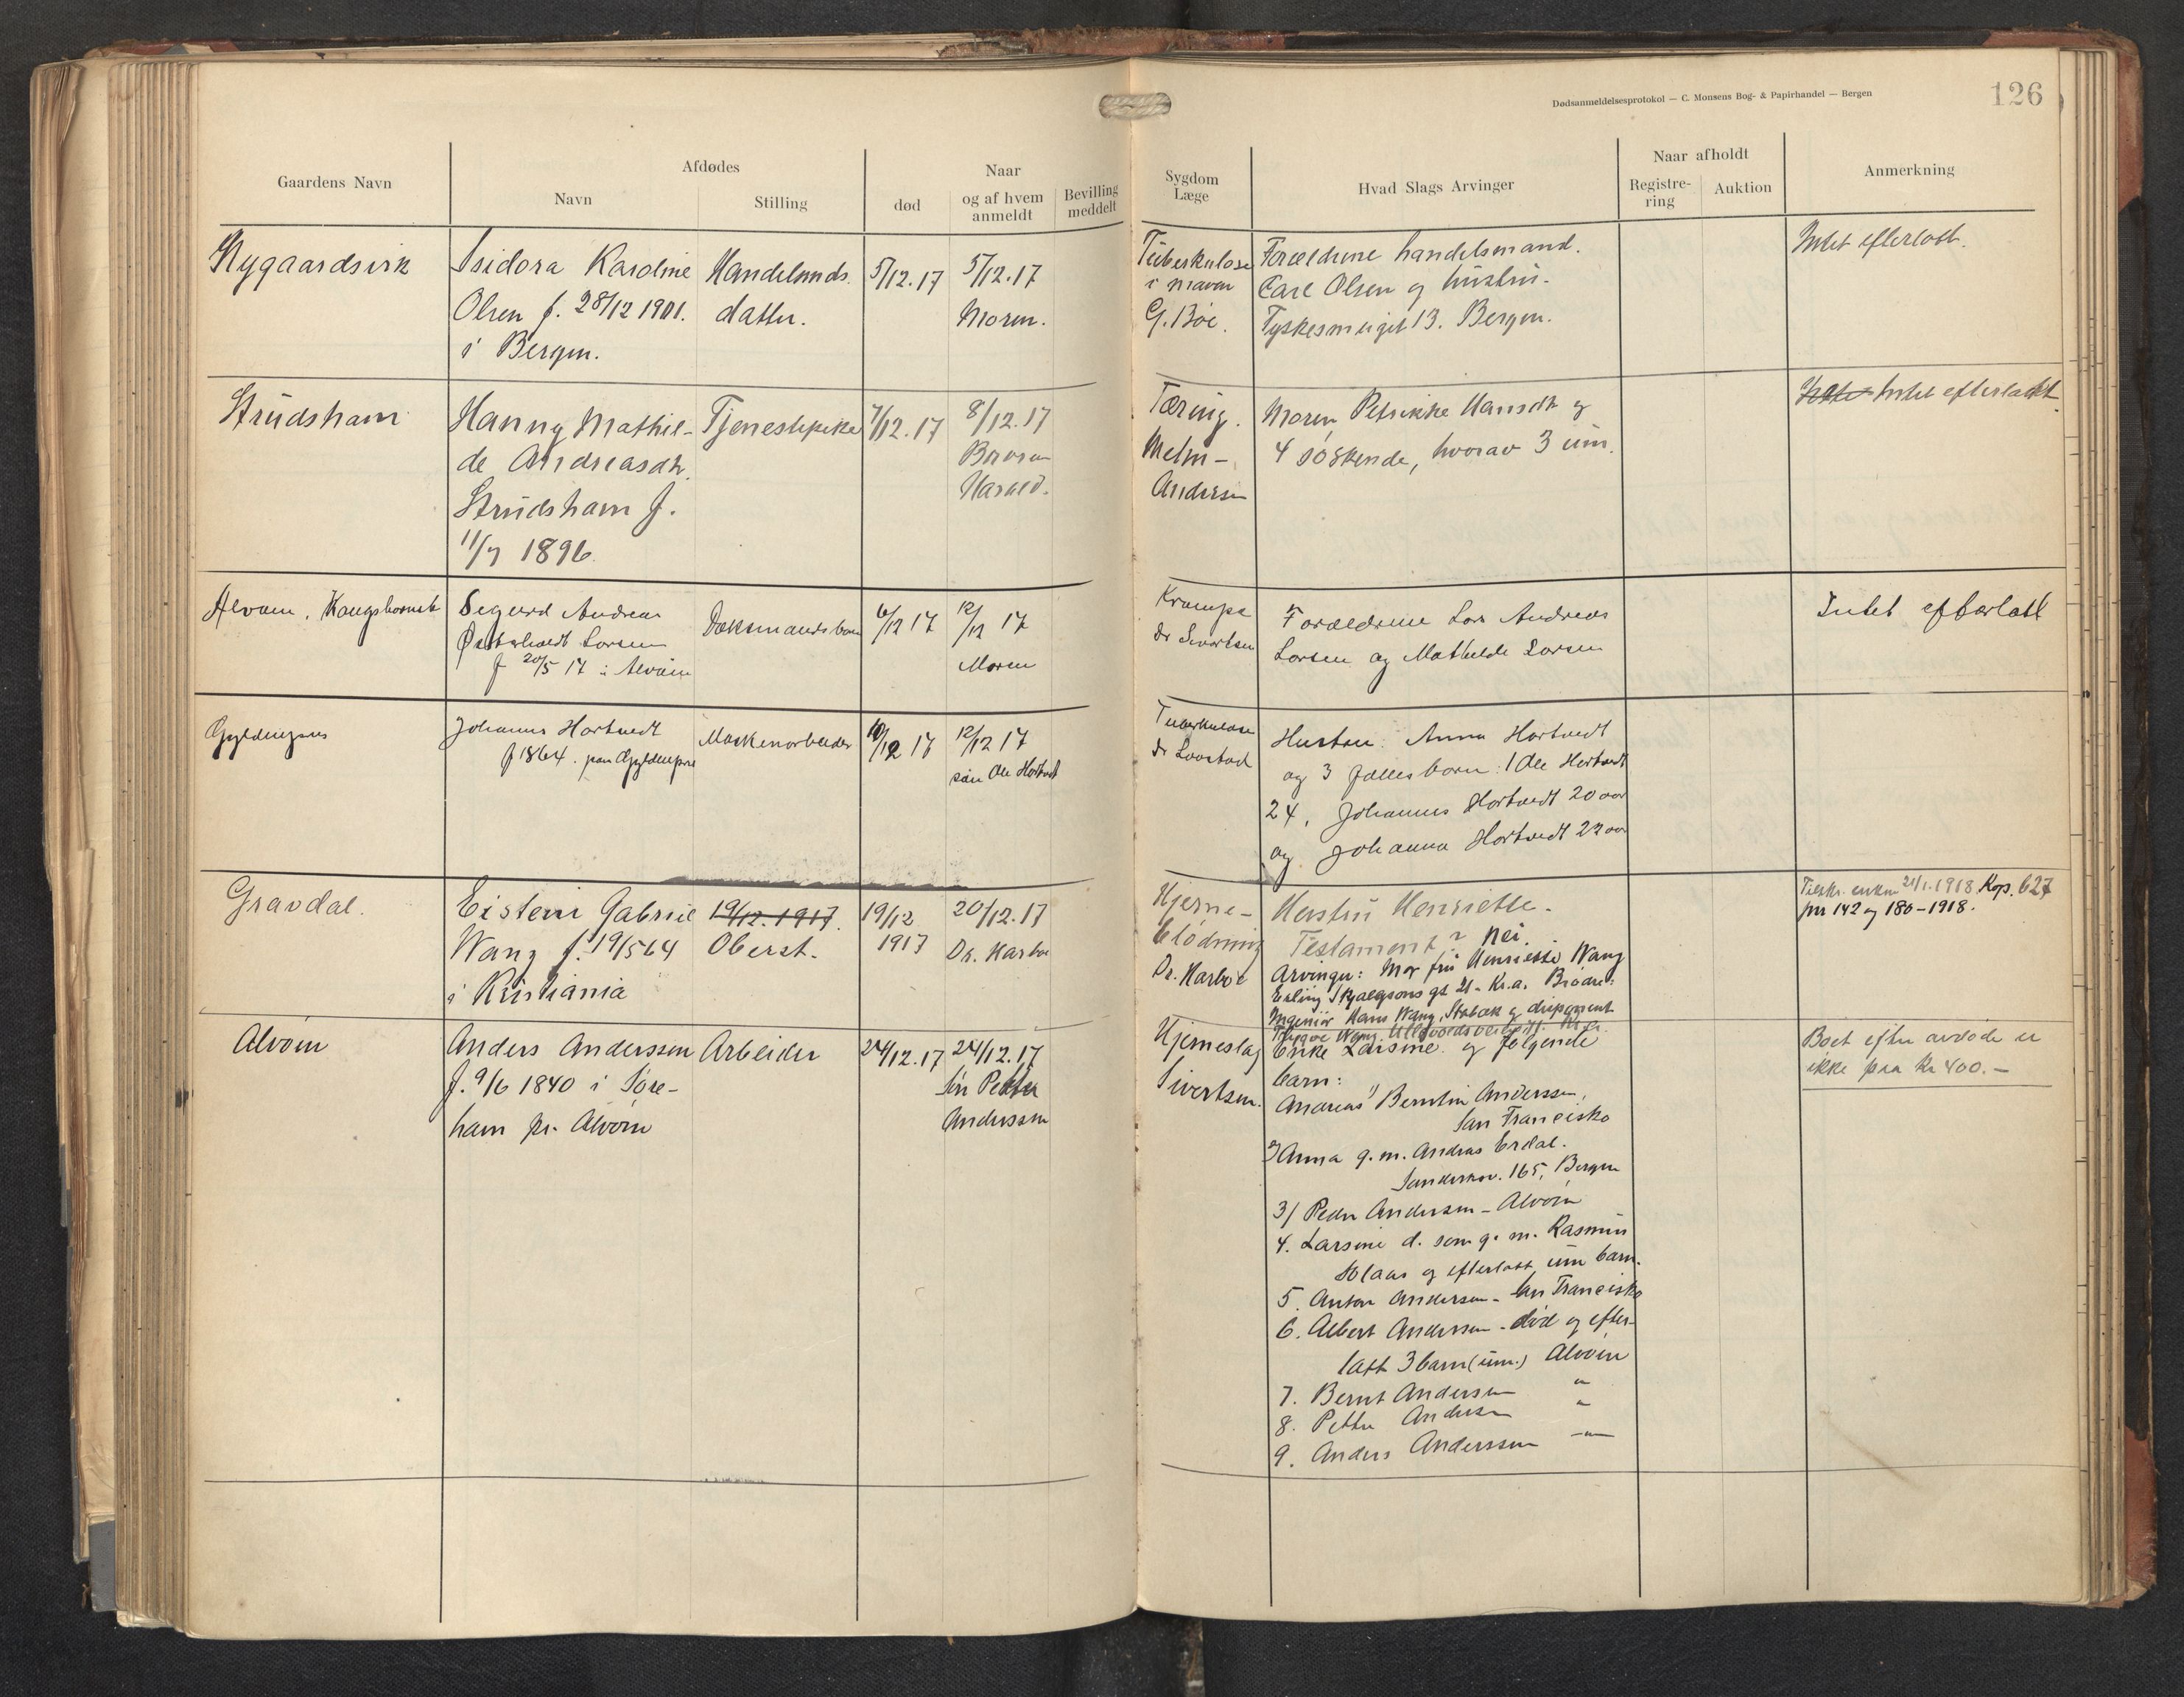 Dødsanmeldelsesprotokol — C. Monsens Bog- & Papirhandel — Bergen
126
Gaardens Navn
Afdødes
Navn
Stilling
død
Naar
og af hvem
anmeldt
Bevilling
meddelt
Sygdom
Læge
Hvad Slags Arvinger
Naar afholdt
Registre-
ring
Auktion
Anmerkning
Nygaardsvik
Isidora Karoline
Olsen f. 28/12 1901.
i Bergen.
Handelsmds.
datter.
5/12.17
5/12.17
Moren.
Tuberkulose
i maven
G. Bøe.
Forældrene handelsmand.
Carl Olsen og hustru.
Tyskesmuget 13. Bergen.
Intet efterlatt.
Strudsham
Hanny Mathil-
de Andreasdr.
Strudsham f.
11/7 1896.
Tjenestepike
7/12.17
8/12.17
Broren
Harald.
Tæring.
Melm-
Andersen
Moren Petrikke Hansdtr og
4 søskende, hvorav 3 um.
Intet efterladt
Alvøen,
Sigurd Andreas
Larsen
f 20/5 17 i Alvøen
6/12 17
12/12 17
Moren
Krampe
dr Sivertsen
Forældrene Lars Andreas
Larsen og Mathilde Larsen
Intet efterlatt
Gyldenpris
Johannes Hortvedt
f 1864. paa Gyldenpris
Maskinarbeider
10/12 17
12/12 17
søn Ole Hortvedt
Tuberkulose
dr Laastad
Hustru: Anna Hortvedt
og 3 fælles børn: 1 Ole Hortvedt
24, Johannes Hortvedt 20 aar
og Johanna Hortvedt 22 aar
Gravdal.
Eistein Gabriel
Wang f. 19/5 64
i Kristiania
19/12.1917.
Oberst.
19/12
1917
20/12.17
Dr. Harboe
Hjerne-
blødning
Dr. Harboe
Hustru Henriette.
Testament? nei.
Arvinger: Mor fru Henriette Wang
Erling Skjalgsons gt 21 - Kr.a. Brødre:
Ingeniør Hans Wang, Stabæk og disponent
Trygve Wang, Kr.a.
Tilskr. enken 21/1.1918 Kop. 627
jnr 142 og 180-1918.
Alvøen
Anders Anderssen
f. 9/6 1840 i Søre-
ham pr. Alvøen
Arbeider
24/12.17
24/12.17
Søn Petter
Anderssen
Hjerneslag
Sivertsen.
Enke Larsine. og følgende
barn:
Andreas 1) Berntin Anderssen,
San Francisko
2) Anna g. m. Andras Erdal.
165, Bergen
3) Peder Andersen - Alvøen
4. Larsine d. som g. m. Rasmus
og efterlatt um barn.
5. Anton Andersen - San Francisko
6. Albert Anderssen - død og efter-
latt 3 barn (um.) Alvøen
7. Bernt Andersen "
8. Petter Andersen "
9. Anders Anderssen -"-
Boet efter avdøde er
ikke paa Kr 400.-